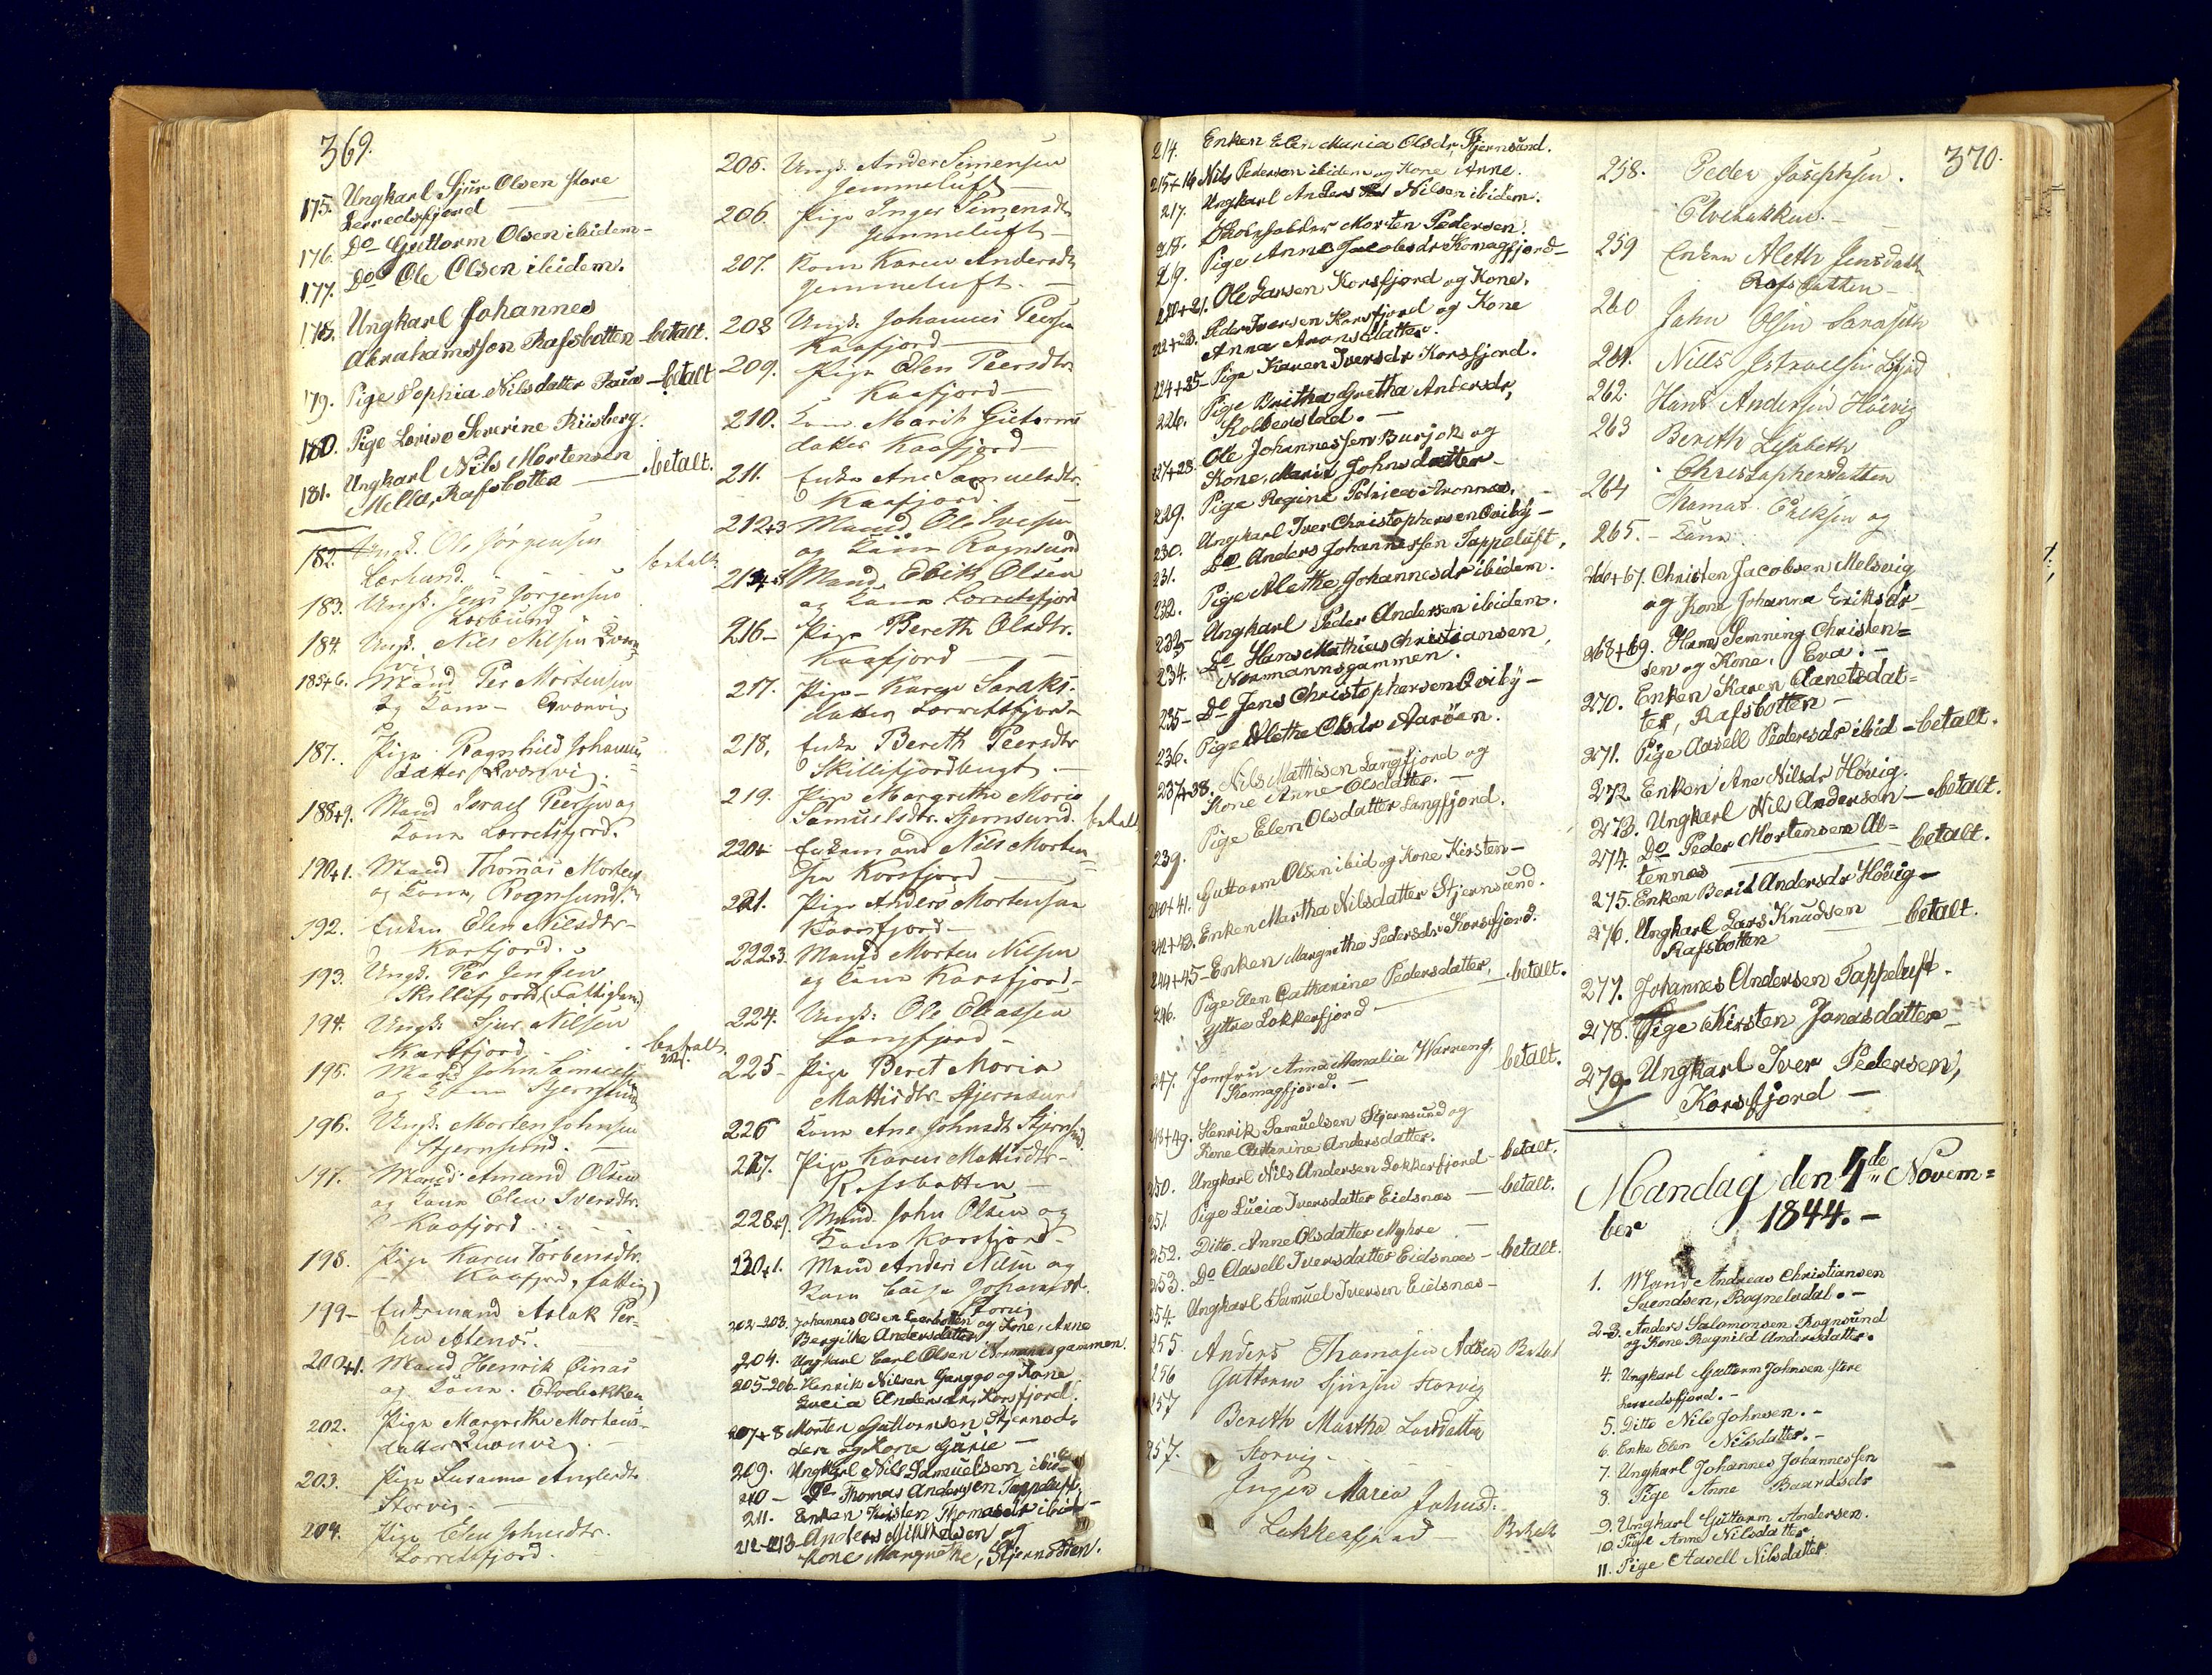 369.
175. Ungkarl Sjur Olsen Store
Lerredsfjord
176. Do Guttorm Olsen ibidem -
177. Do Ole Olsen ibidem.
178. Ungkarl Johannes
Abrahamsson Rafsbotten - betalt.
179. Pige Sophia Nilsdatter - betalt
180. Pige Lovise Severine Riisberg.
181. Ungkarl Nils Mortensen
Mella, Rafsbotten - betalt.
182. Ungk. Ole Jörgensen betalt
183. Ungk. Jens Jörgensen
184. Ungk. Nils Nilsen
185+6. Mand Per Mortensen
og Kone - Qvænvig
187. Pige Ragnhild Johannes
datter Qvænvig.
188+9. Mand Israel Peersen og
Kone Lerretsfjord.
190+1. Mand Thomas Morten
og Kone, Rognsund.
192. Enken Elen Nilsdtr -
Korsfjord.
193. Ungk. Per Jensen
Skillefjord (Fattiglem)
194. Ungk. Sjur Nilsen
Korsfjord - betalt
195. Mand John Samuels
og Kone Stjernsund
196. Ungk. Morten Johnsen
Stjernsund. -
197. Mand Amund Olsen
og Kone Elen Iversdtr.
Kaafjord
198. Pige Karen Torbensdtr.
Kaafjord, fattig)
199 - Enkemand Aslak Per-
sen Altenes.
200+1. Mand Henrik Einar
og Kone. Elvebakken
202. Pige Margrethe Mortens-
datter Qvænvig. -
203. Pige Susanna
Storvig. -
204. Pige Elen Johnsdtr.
Lorretsfjord.
205. Ungk. Ander Simensen
Jemmeluft -
206. Pige Inger Simensdtr
Jemmeluft -
207. Kone Karen Andersdtr
Jemmeluft. -
208 Ungk. Johannes Peersen
Kaafjord
209. Pige Elen Peersdtr
Kaafjord -
210. Kone Marit Gutorms
datter Kaafjord -
211. Enke Ane Samuelsdtr.
Kaafjord. -
212+3 Mand Ole Iversen
og Kone Rognsund
214+5 Mand Erik Olsen
og Kone Lorretsfjord
216 - Pige Bereth Olsdtr.
Kaafjord -
217. Pige - Karen
datter Lorretsfjord -
218. Enke Bereth Peersdtr
Skillefjordbugt -
219. Pige Margrethe Maria
Samuelsdtr. Stjernsund. betalt
220+ Enkemand Nils Morten-
sen Korsfjord -
221. Pige Anders Mortensen
Korsfjord -
222+3. Mand Morten Nilsen
og Kone Korsfjord -
224. Ungk. Ole Eliassen
Langfjord -
225 - Pige Beret Maria
Mattisdtr. Stjernsund
226 Kone Ane Johnsdtr Stjernsund
227. Pige Karen Mattisdtr -
Rafsbotten -
228+9. Mand John Olsen og
Kone Korsfjord -
230+1. Mand Anders Nilsen og
Kone
Storvig
202-203. Johannes Olsen Leerbotten og Kone, Anne
Bergitte Andersdatter
204. Ungkarl Carl Olsen Normannsgammen.
205-206 - Henrik Nilsen Ganggo og Kone
Lucia Andersdr, Korsfjord.
207+8 Morten Guttormsen Stjernod-
den og Kone Gurie -
209. Ungkarl Nils Samuelsen ibid -
210 - Do Thomas Andersen Tappeluft
211. Enken Kirsten Thomasdr ibid -
212-213 - Anders Mikkelsen og
Kone Margrethe, Stjernodden.
214. Enken Elen Maria Olsdr, Stjernsund.
215+16 Nils Pedersen ibidem og Kone Anne.
217. Ungkarl Anders Nilsen ibidem.
218. Skoleholder Morten Pedersen.
219. Pige Anne Jacobsdr Komagfjord -
220+21. Ole Larsen Korsfjord og Kone.
222+23. Peder Iversen Korsfjord og Kone
Anna Aronsdatter.
224+25 - Pige Karen Iversdr Korsfjord.
226. Pige Britha Gretha Andersdr,
Kobberstad. -
227+28. Ole Johannessen Burjok og
Kone, Marit Johnsdatter -
229. Pige Regine Petrica Aronnæs.
230. Ungkarl Iver Christophersen Qviby -
231. Do Anders Johannessen Tappeluft,
232. Pige Alethe Johannesdr ibidem.
233 - Ungkarl Peder Andersen ibidem.
234. Do Hans Mathias Christiansen,
Normannsgammen.
235 - Do Jens Christophersen Qviby -
236. Pige Alethe Olsdr Aaröen.
237+38. Nils Mathisen Langfjord og
Kone Anne Olsdatter. -
239. Pige Elen Olsdatter Langfjord.
240+41. Guttorm Olsen ibid og Kone Kirsten -
242+43. Enken Martha Nilsdatter Stjernsund.
244+45 - Enken Margrethe Pedersdr Korsfjord.
246. Pige Elen Catharine Pedersdatter, betalt.
Yttre Lokkerfjord -
247. Jomfru Anna Amalia Warreng, betalt.
Komagfjord. -
248+49. Henrik Samuelsen Stjernsund og
Kone Catharine Andersdatter.
250. Ungkarl Nils Andersen Lokkerfjord - betalt.
251. Pige Lucia Iversdatter Eidsnæs - betalt.
252. Ditto Anne Olsdatter Myhre -
253. Do Aasell Iversdatter Eidsnæs - betalt.
254. Ungkarl Samuel Iversen Eidsnæs -
255 Anders Thomasen Betalt
256 Guttorm Sjursen Storvig
257 Bereth Martha Larsdatter
257. Storvig -
Inger Maria Johnsd:
Lokkerfjord - Betalt
370.
258. Peder Josephsen.
Elvebakken. -
259 Enken Aleth Jensdatter
Rafsbotten -
260 John Olsen
261. Nills Istraelsen
262. Hans Andersen Höevig
263 Bereth Lisabeth
Christophersdatter
264 Thomas Eriksen og
265. - Kone.
266+67. Christen Jacobsen Melsvig
og Kone Johanna Eriksdr -
268+69. Hans Hemning Christen=
sen og Kone. Eva. -
270. Enken Karen Aanetsdat=
ter, Rafsbotten -
271. Pige Aasell Pedersdr ibid - betalt.
272. Enken Ane Nilsdr Hövig.
273. Ungkarl Nils Andersen - betalt.
274. Do Peder Mortensen Al=
tennæs - betalt.
275. Enken Berit Andersdr Hövig -
276. Ungkarl Lars Knudsen betalt.
Rafsbotten
277. Johannes Andersen Tappeluft.
278. Pige Kirsten Jonasdatter -
279. Ungkarl Iver Pedersen,
Korsfjord -
Mandag den 4de Novem=
ber 1844. -
1. Mand Andreas Christiansen
Svendsen, Bognelvdal. -
2-3. Anders Salomonsen Rognsund
og Kone Ragnild Andersdatter.
4. Ungkarl Guttorm Johnsen Store
Lerredsfjord. -
5. Ditto Nils Johnsen. -
6. Enke Elen Nilsdatter. -
7. Ungkarl Johannes Johannessen
8. Pige Anne Baardsdr
9. Ungkarl Guttorm Andersen.
10. Pige Anne Nilsdatter
11. Pige Aasell Nilsdatter.